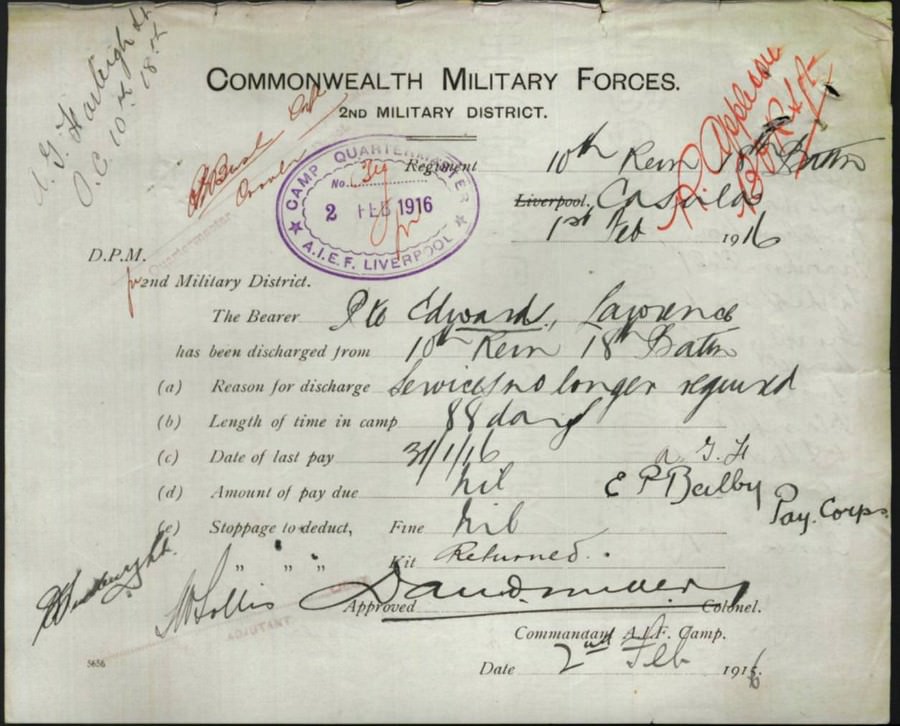 A. G. Farleigh Lt
O.C. 10th 18th
COMMONWEALTH MILITARY FORCES.
2ND MILITARY DISTRICT.
CAMP QUARTERMASTER
No.
2 FEB 1916
A.I.E.F. LIVERPOOL
Regiment 10th Rein 18th Battn
Liverpool. Casula
1st Feb 1916
D.P.M.
for 2nd Military District.
The Bearer Pte Edwards, Lawrence
has been discharged from 10th Rein 18th Battn
(a) Reason for discharge Services no longer required
(b) Length of time in camp 88 days
(c) Date of last pay 31/1/16 A.G.F
(d) Amount of pay due Nil E P Bailby Pay. Corps.
(e) Stoppage to deduct, Fine Nil
„ „ „ Kit Returned.
Approved Colonel.
ADJUTANT
Commandant A.I.F. Camp.
5656
Date 2nd Feb 1916.